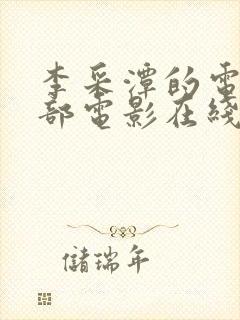 李采潭的電
部電影在綫
儲瑞年